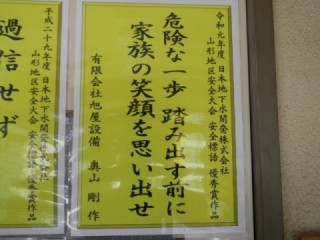 令和元年度 日本地下水開発株式会社
山形地区安全大会 安全標語 優秀賞作品
危険な一歩 踏み出す前に
家族の笑顔を思い出せ
有限会社旭屋設備 奥山 剛 作
平成二十九年度 日本地下水開発株式会社
山形地区安全大会 安全標語 優秀賞作品
過信せず